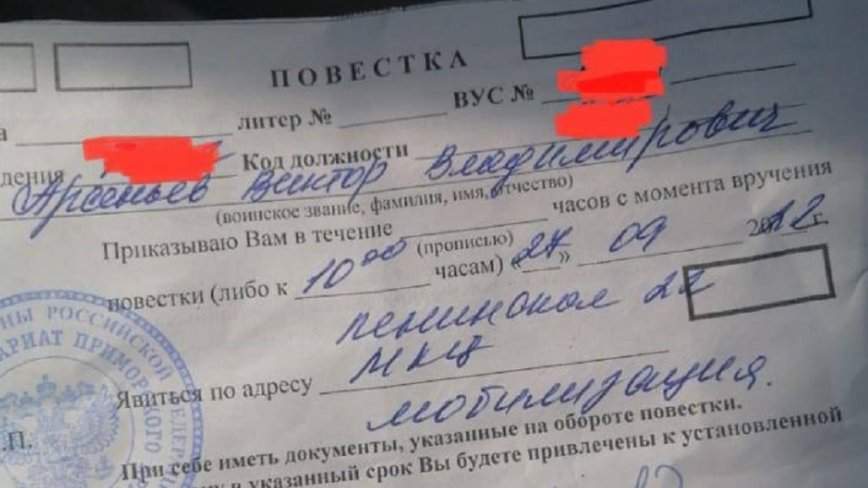 ПОВЕСТКА
литер № ВУС №
дения Код должности
Арсеньев Виктор Владимирович
(воинское звание, фамилия, имя, отчество)
Приказываю Вам в течение часов с момента вручения
(прописью)
повестки (либо к 10⁰⁰ часам) «27» 09 2022 г.
Ленинская 22
МКЦ
Явиться по адресу
мобилизация.
При себе иметь документы, указанные на обороте повестки.
в указанный срок Вы будете привлечены к установленной
РОССИЙСКОЙ
ПРИМОРСКОГО
.П.